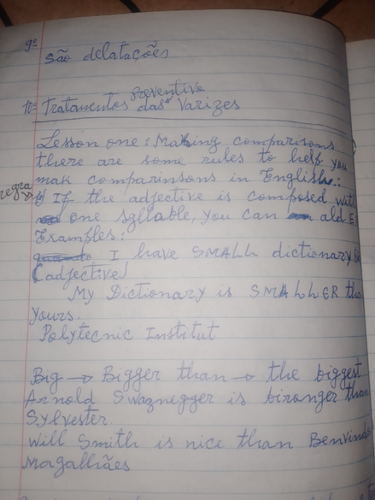 9º
São delatações
Preventivo
10º Tratamentos das Varizes
Lesson one: Making comparisons
there are some rules to help you
mak comparinsons in English.:
regra
If the adjective is composed with
one syllable, you can ald E
Examples:
I have SMALL dictionary
(adjective)
My Dictionary is SMALLER tha
yours.
Polytecnic Institut
Big → Bigger than → the biggest
Arnold Swaznegger is bironger than
Sylvester.
Will Smith is nice than Benvind
Magalhães